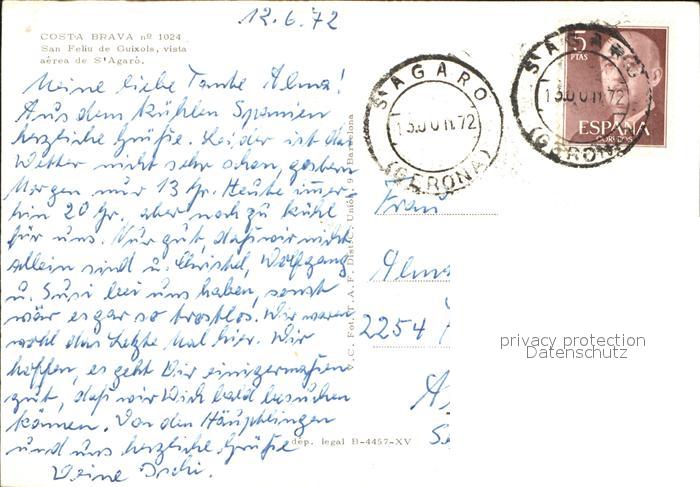 12.6.72
COSTA BRAVA nº 1024
San Feliu de Guixols, vista
aérea de S'Agaró.
Meine liebe Tante Alma!
Aus dem kühlen Spanien
herzliche Grüße. Leider ist das
Wetter nicht sehr schön, gestern
Morgen nur 13 Gr. Heute immer-
hin 20 Gr. aber noch zu kühl
für uns. Nur gut, daß wir nicht
allein sind u. Christel, Wolfgang
u. Susi bei uns haben, sonst
wär es gar so trostlos. Wir waren
wohl das letzte Mal hier. Wir
hoffen, es geht Dir einigermaßen
gut, daß wir Dich bald besuchen
können. Von den Häuptlingen
und uns herzliche Grüße
Deine Ischi.
dép. legal B-4457-XV
S'AGARO
13.JUN.72
(GERONA)
S'AGARO
13.JUN.72
(GERONA)
5
PTAS
ESPAÑA
CORREOS
Frau
Alma
2254
privacy protection
Datenschutz